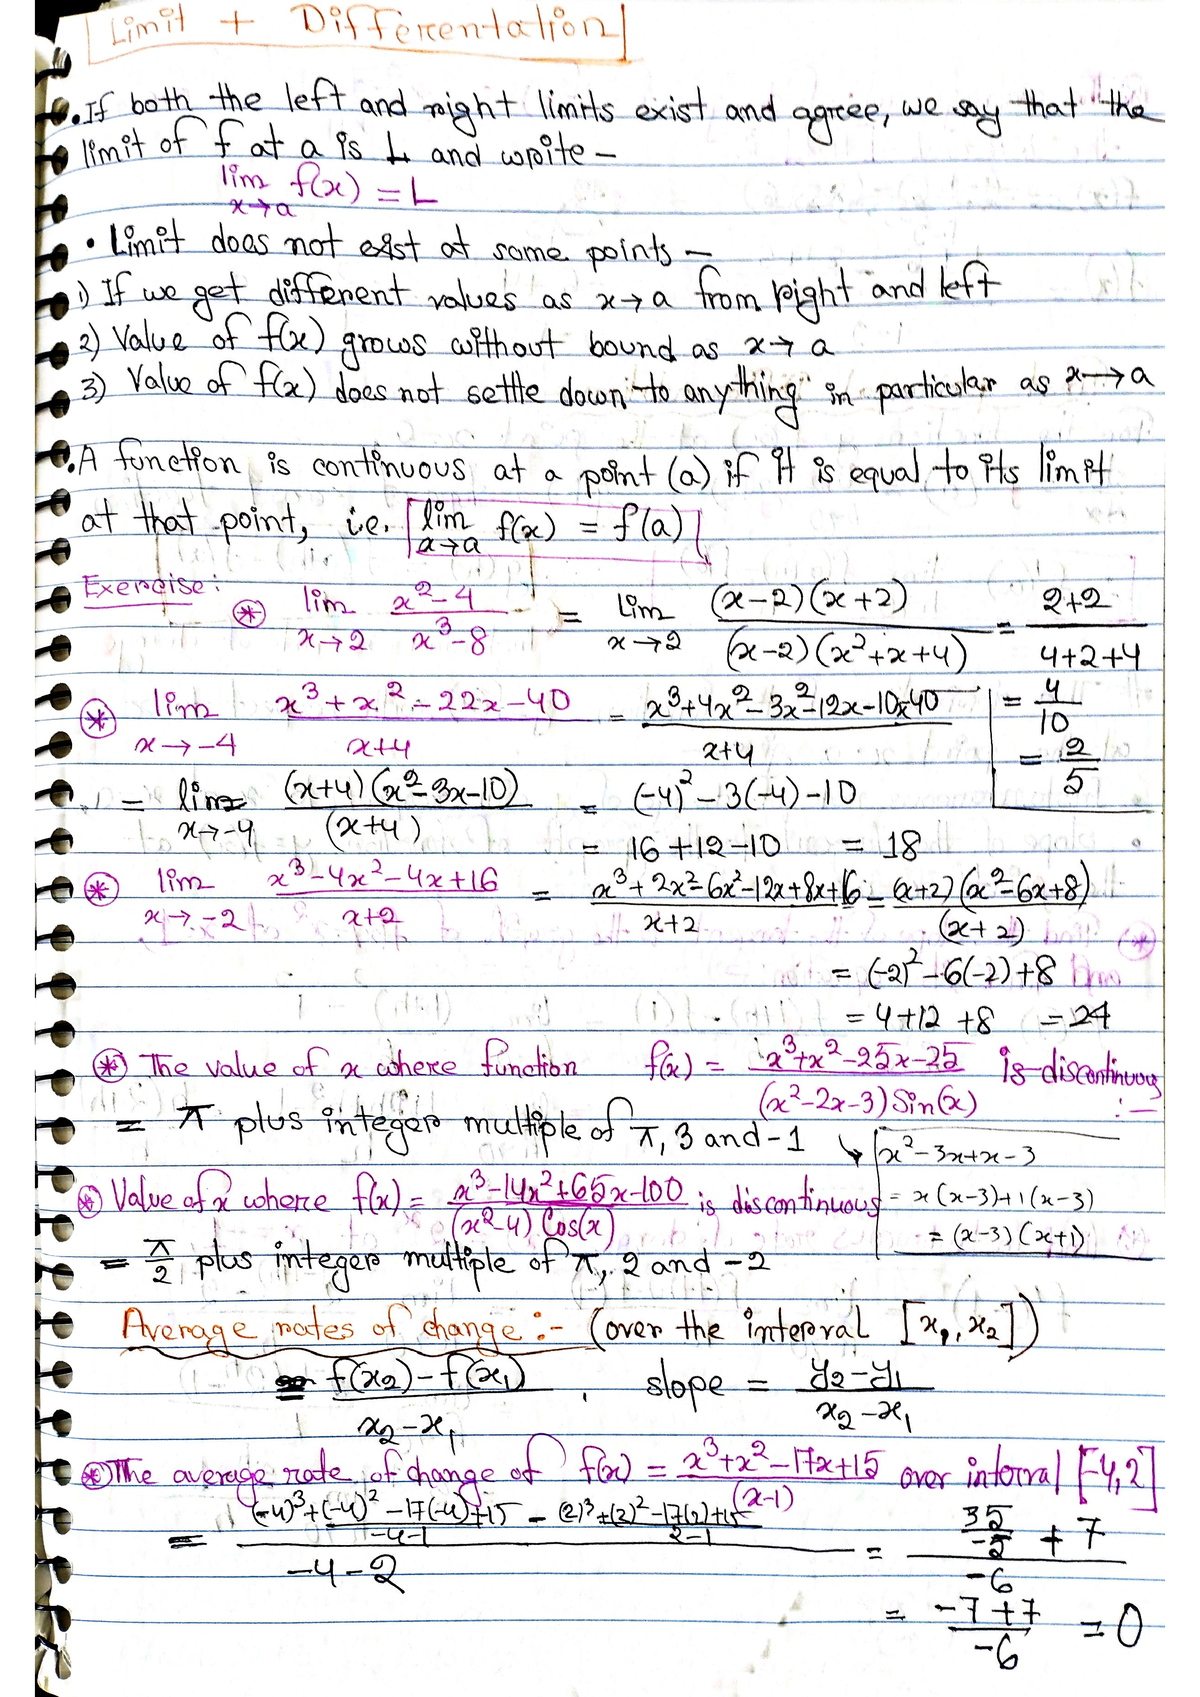 Limit + Differentation
• If both the left and right limits exist and agree, we say that the
limit of f at a is L and write –
lim f(x) = L
x→a
• Limit does not exist at some points –
1) If we get different values as x→a from right and left
2) Value of f(x) grows without bound as x→a
3) Value of f(x) does not settle down to anything in particular as x→a
• A function is continuous at a point (a) if it is equal to its limit
at that point, i.e. lim f(x) = f(a)
x→a
Exercise:
⊛ lim x→2 (x²-4)/(x³-8) = Lim x→2 (x-2)(x+2)/(x-2)(x²+x+4) = (2+2)/(4+2+4)
= 4/10
= 2/5
⊛ lim x→-4 (x³+x²-22x-40)/(x+4) = (x³+4x²-3x²-12x-10x40)/(x+4)
= lim x→-4 (x+4)(x²-3x-10)/(x+4) = (-4)²-3(-4)-10
= 16+12-10 = 18
⊛ lim x→-2 (x³-4x²-4x+16)/(x+2) = (x³+2x²-6x²-12x+8x+16)/(x+2) = (x+2)(x²-6x+8)/(x+2)
= (-2)²-6(-2)+8
= 4+12+8 = 24
⊛ The value of x where function f(x) = (x³+x²-25x-25)/(x²-2x-3)Sin(x) is discontinuous :–
= π plus integer multiple of π, 3 and -1
x²-3x+x-3
= x(x-3)+1(x-3)
= (x-3)(x+1)
⊛ Value of x where f(x) = (x³-14x²+65x-100)/(x²-4)Cos(x) is discontinuous
= π/2 plus integer multiple of π, 2 and -2
Average rates of change :- (over the interval [x₁, x₂])
= (f(x₂)-f(x₁))/(x₂-x₁), slope = (y₂-y₁)/(x₂-x₁)
⊛ The average rate of change of f(x) = (x³+x²-17x+15)/(x-1) over interval [-4,2]
= (((-4)³+(-4)²-17(-4)+15)/(-4-1) - ((2)³+(2)²-17(2)+15)/(2-1))/(-4-2) = (35/-5 + 7)/-6
= (-7+7)/-6 = 0